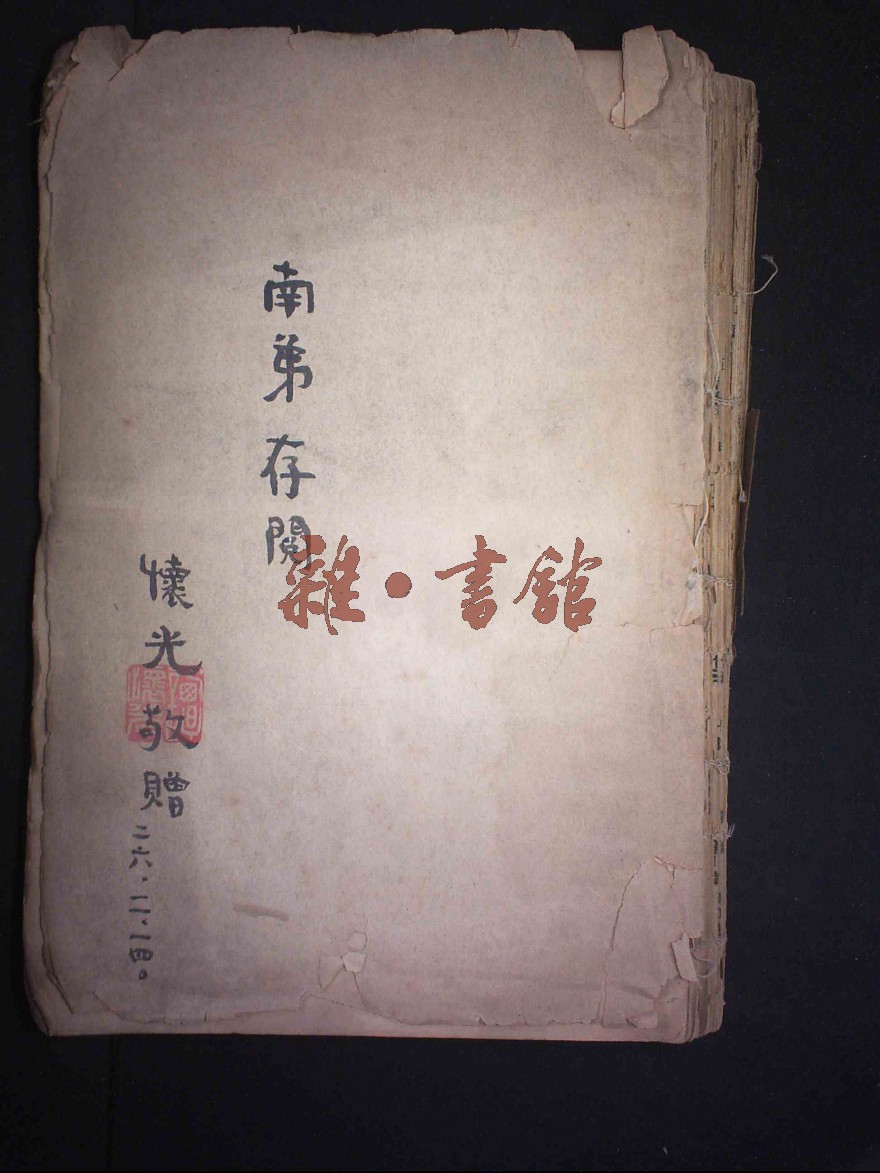 南弟存閱
懷光敬贈
二六.二.一四。
雜·書館